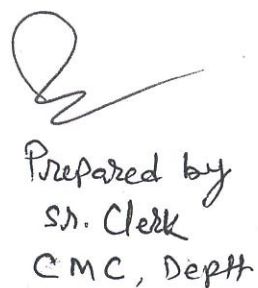 Prepared by
Sr. Clerk
CMC, Deptt